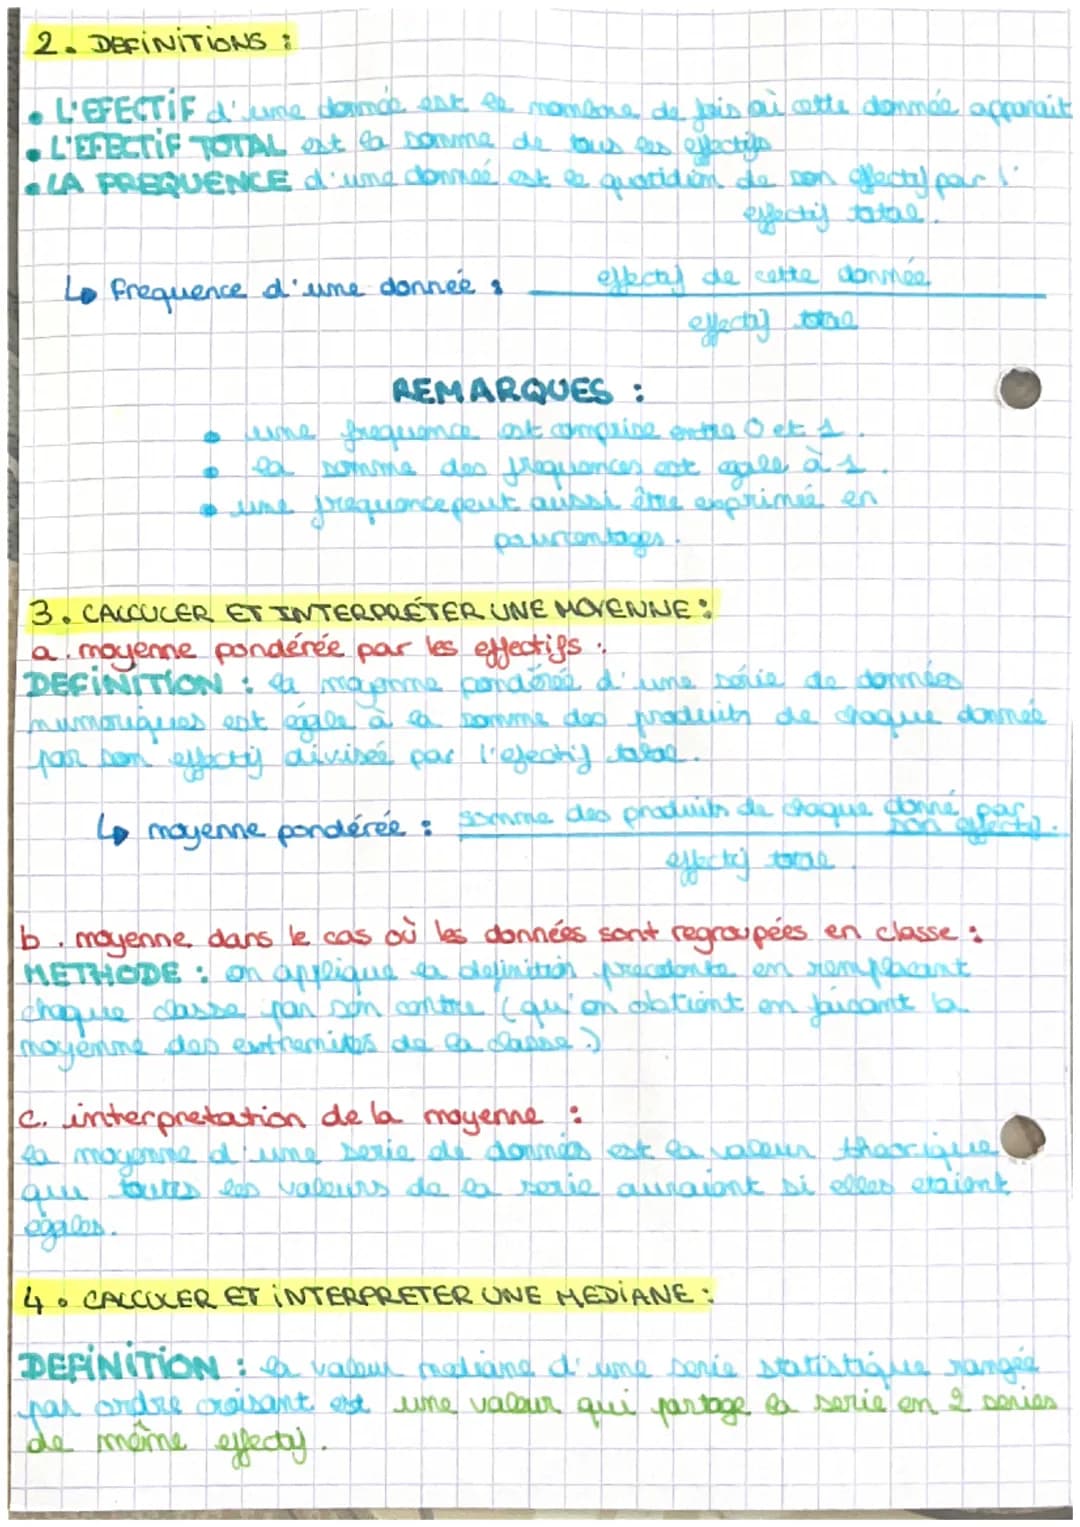 2. DEFINITIONS :
• L'EFECTIF d'une donnée est le nombre de fois où cette donnée apparait
• L'EFECTIF TOTAL est la somme de tous les effectifs
• LA FREQUENCE d'une donneé est le quotidien de son effectif par l'
effectif total.
↳ frequence d'une donneé : effectif de cette donnée
effectif total
REMARQUES :
• une frequence est comprise entre 0 et 1.
• la somme des frequences est egale à 1.
• une frequence peut aussi être exprimeé en
pourcentages.
3. CALCULER ET INTERPRÉTER UNE MOYENNE :
a. moyenne pondérée par les effectifs :
DEFINITION : la moyenne pondéreé d'une série de données
numeriques est égale à la somme des produits de chaque donneé
par son effectif diviseé par l'efectif total.
↳ moyenne pondérée : somme des produits de chaque donné par
son effectif.
effectif total.
b. moyenne dans le cas où les données sont regroupées en classe :
METHODE : on applique la definition precedente en remplacant
chaque classe par son centre (qu'on obtient en faisant la
moyenne des exthemités de la classe.)
c. interpretation de la moyenne :
la moyenne d'une serie de données est la valeur theorique
que toutes les valeurs de la serie auraient si elles etaient
egales.
4. CALCULER ET INTERPRETER UNE MEDIANE :
DEFINITION : la valeur mediane d'une serie statistique rangée
par ordre croisant est une valeur qui partage la serie en 2 series
de même effectif.